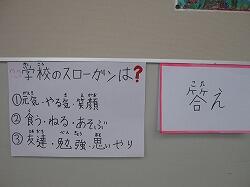 学校のスローガンは?
①元気・やる気・笑顔
②食う・ねる・あそぶ
③友達・勉強・思いやり
答え